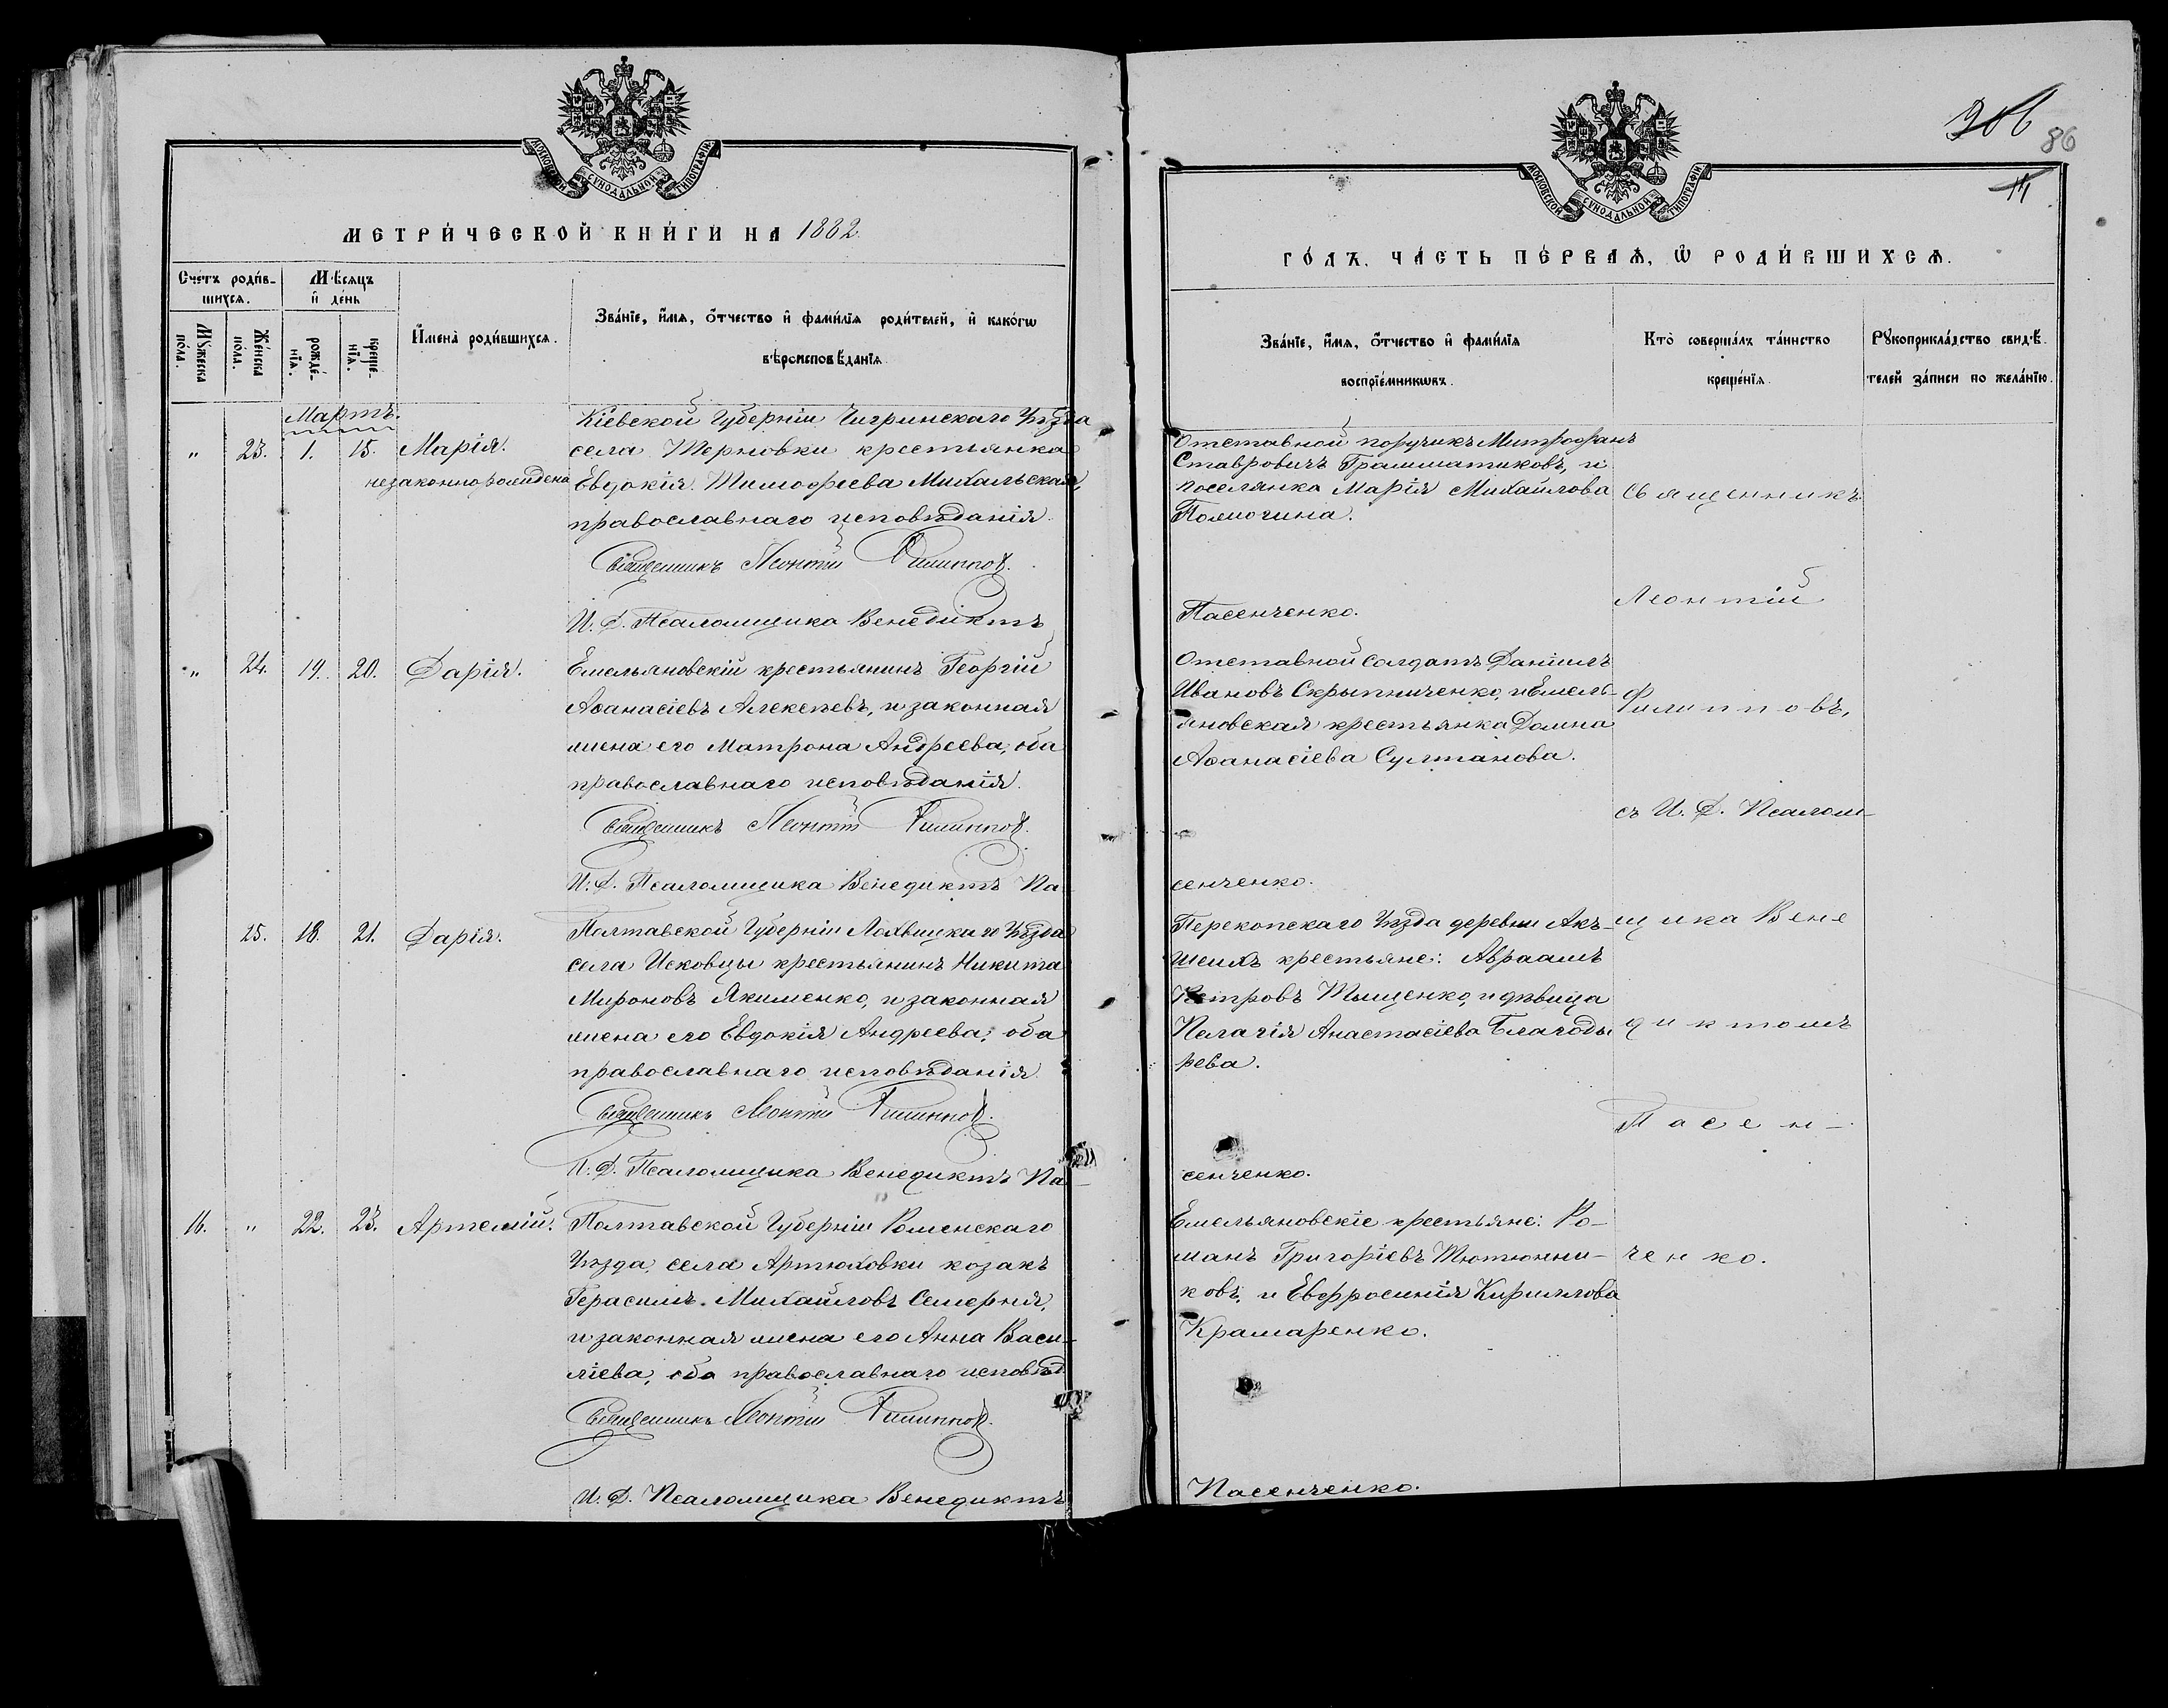 МОСКОВСКОЙ СѴНОДАЛЬНОЙ ТИПОГРАФІИ
МЕТРИ́ЧЕСКОЙ КНИ́ГИ НА 1882
Сче́тъ роди́в-
шихся.
Мѣсяцъ
и҆ де́нь
Мꙋ́жеска
по́ла.
Же́нска
по́ла.
рожде́-
нїѧ.
креще́-
нїѧ.
И҆мена̀ роди́вшихся.
Зва́нїе, и҆́мя, ѻ҆́тчество и҆ фами́лїя роди́телей, и҆ како́гѡ
вѣроисповѣ́данїя
Мартъ.
Кіевской Губерніи Чигринскаго Уѣзда
" 23. 1. 15. Марія. села Терновки крестьянка
незаконнорожденна Евдокія Тимофеева Михальская,
православнаго исповѣданія.
Священникъ Леонтій Филиппов.
И. Д. Псаломщика Венедиктъ
" 24. 19. 20. Дарія. Емельяновскій крестьянинъ Георгій
Аѳанасіевъ Алексѣевъ, и законная
жена его Матрона Андреева, оба
православнаго исповѣданія.
Священникъ Леонтій Филиппов.
И. Д. Псаломщика Венедиктъ Па-
25. 18. 21. Дарія. Полтавской Губерніи Лохвицкаго Уѣзда
села Исковцы крестьянинъ Никита
Мироновъ Якименко, и законная
жена его Евдокія Андреева, оба
православнаго исповѣданія
Священникъ Леонтій Филиппов.
И. Д. Псаломщика Венедиктъ Па-
16. " 22. 23. Артемій. Полтавской Губерніи Роменскаго
Уѣзда, села Артюховки козакъ
Герасимъ Михайловъ Семерня,
и законная жена его Анна Васи-
ліева, оба православнаго исповѣд.
Священникъ Леонтій Филиппов.
И. Д. Псаломщика Венедиктъ
86
МОСКОВСКОЙ СѴНОДАЛЬНОЙ ТИПОГРАФІИ
ГО́ДЪ, ЧА́СТЬ ПЕ́РВАЯ, Ѡ҆ РОДИ́ВШИХСЯ.
Зва́нїе, и҆́мя, ѻ҆́тчество и҆ фами́лїя
воспрїе́мникѡвъ.
Кто̀ соверша́лъ та́инство
креще́нїя
Рꙋкоприкла́дство свидѣ́-
телей за́писи по жела́нїю.
Отставной поручикъ Митрофанъ
Ставровичъ Грамматиковъ, и
поселянка Марія Михайлова Священникъ
Помочина.
Леонтій
Пасенченко.
Отставной солдатъ Даніилъ
Ивановъ Скрыпниченко, и Емель- Филипповъ,
яновская крестьянка Домна
Аѳанасіева Султанова.
съ И. Д. Псалом-
сенченко.
Перекопскаго Уѣзда деревни Акъ- щика Вене
Шеихъ крестьяне: Авраамъ
Петровъ Тыщенко, и дѣвица
Пелагія Анастасіева Благоды диктомъ
рева.
Пасен-
сенченко.
Емельяновскіе крестьяне: Ро-
манъ Григоріевъ Тютюнни- ченко.
ковъ, и Евфросинія Кириллова
Крамаренко.
Пасенченко.